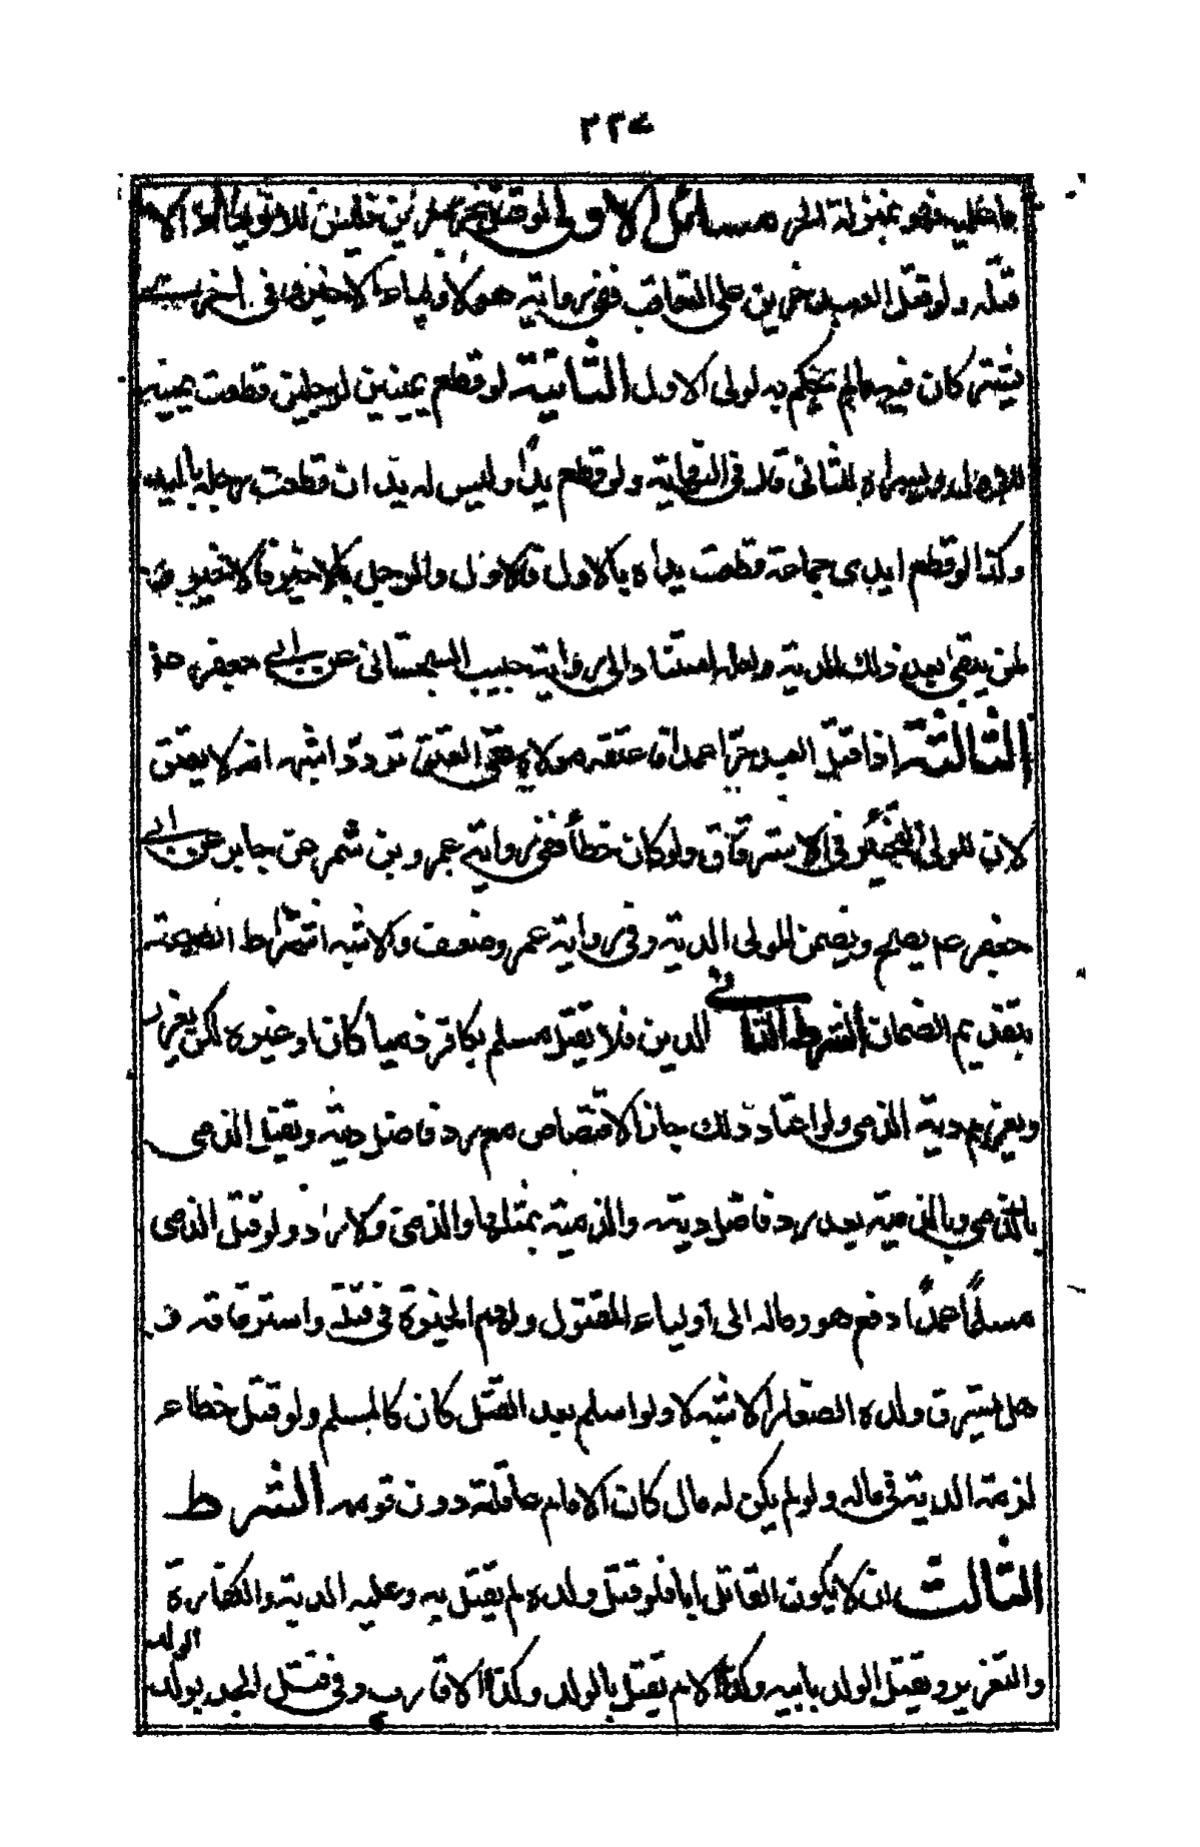 ٢٢٧
ما عليه فهو بمنزلة الحر مسائل الاولى لو قتل حر حرين فليس للاولياء الا
قتله ولو قتل العبد حرين على التعاقب ففي رواية هو لاولياء الاخير وفي اخرى
يشتركان فيه ما لم يحكم به لولى الاول الثانية لو قطع يمينين لرجلين قطعت يمينه
للاول ويسراه للثانى قال فى النهاية ولو قطع يدا وليس له يدان قطعت رجله باليد
وكذا لو قطع ايدى جماعة قطعت يداه بالاول فالاول والرجل بالاخير فالاخير
لمن يبقى بعد ذلك الدية ولعله استنادا الى رواية حبيب السجستانى عن ابى جعفر
الثالثة اذا قتل العبد حرا عمدا فاعتقه مولاه ففى العتق تردد اشبهه انه لا يعتق
لان للولى التخيير فى الاسترقاق ولو كان خطأ ففى رواية عمرو بن شمر عن جابر عن ابى
جعفر ع يصح ويضمن المولى الدية وفى رواية عمرو ضعف والاشبه اشتراط الصحة
بتقديم الضمان الشرط الثانى الدين فلا يقتل مسلم بكافر ذميا كان او غيره لكن يعزر
ويغرم دية الذمى ولو اعتاد ذلك جاز الاقتصاص مع رد فاضل ديته ويقتل الذمى
بالذمى وبالذمية بعد رد فاضل ديته والذمية بمثلها والذمى ولا رد ولو قتل الذمى
مسلما عمدا دفع هو وماله الى اولياء المقتول ولهم الخيرة فى قتله واسترقاقه و
هل يسترق ولده الصغار الاشبه لا ولو اسلم بعد القتل كان كالمسلم ولو قتل خطاء
لزمته الدية فى ماله ولو لم يكن له مال كان الامام عاقلته دون قومه الشرط
الثالث ان لا يكون القاتل ابا فلو قتل ولده لم يقتل به وعليه الدية والكفارة
والتعزير ويقتل الولد بابيه وكذا الام يقتل بالولد وكذا الاقارب وفى قتل الجد بولد
الولد